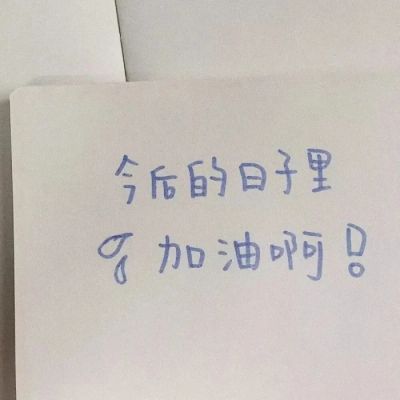 今后的日子里
加油啊!